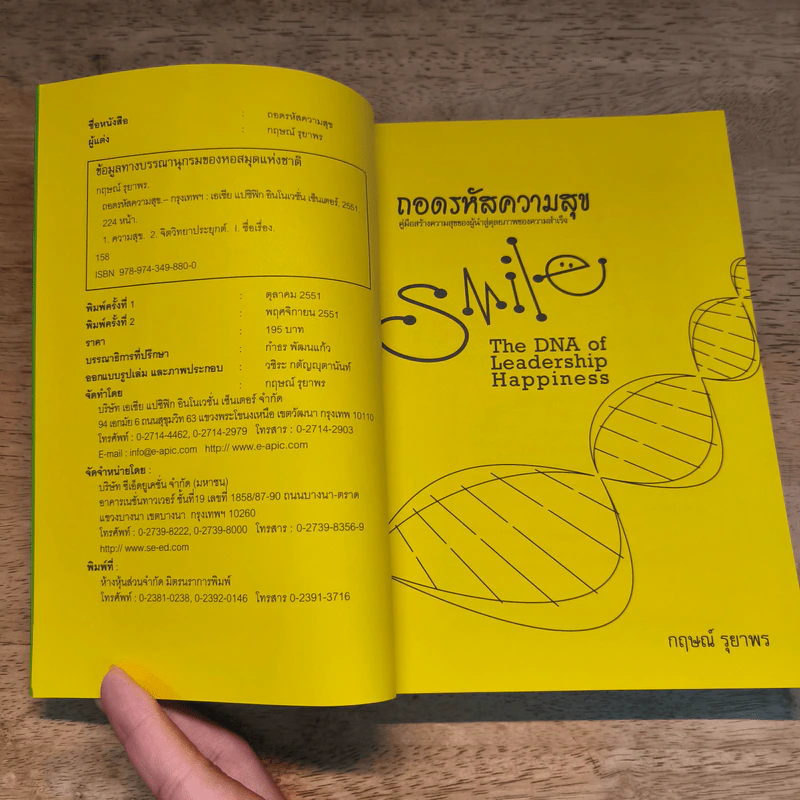 ชื่อหนังสือ : ถอดรหัสความสุข
ผู้แต่ง : กฤษณ์ รุยาพร
ข้อมูลทางบรรณานุกรมของหอสมุดแห่งชาติ
กฤษณ์ รุยาพร.
ถอดรหัสความสุข.-- กรุงเทพฯ : เอเซีย แปซิฟิก อินโนเวชั่น เซ็นเตอร์, 2551
224 หน้า.
1. ความสุข. 2. จิตวิทยาประยุกต์. I. ชื่อเรื่อง.
158
ISBN 978-974-349-880-0
พิมพ์ครั้งที่ 1 : ตุลาคม 2551
พิมพ์ครั้งที่ 2 : พฤศจิกายน 2551
ราคา : 195 บาท
บรรณาธิการที่ปรึกษา : กำธร พัฒนแก้ว
ออกแบบรูปเล่ม และภาพประกอบ : วชิระ กตัญญุตานันท์
จัดทำโดย : กฤษณ์ รุยาพร
บริษัท เอเซีย แปซิฟิก อินโนเวชั่น เซ็นเตอร์ จำกัด
94 เอกมัย 6 ถนนสุขุมวิท 63 แขวงพระโขนงเหนือ เขตวัฒนา กรุงเทพ 10110
โทรศัพท์ : 0-2714-4462, 0-2714-2979 โทรสาร : 0-2714-2903
E-mail : info@e-apic.com http:// www.e-apic.com
จัดจำหน่ายโดย :
บริษัท ซีเอ็ดยูเคชั่น จำกัด (มหาชน)
อาคารเนชั่นทาวเวอร์ ชั้นที่19 เลขที่ 1858/87-90 ถนนบางนา-ตราด
แขวงบางนา เขตบางนา กรุงเทพฯ 10260
โทรศัพท์ : 0-2739-8222, 0-2739-8000 โทรสาร : 0-2739-8356-9
http:// www.se-ed.com
พิมพ์ที่ :
ห้างหุ้นส่วนจำกัด มิตรนราการพิมพ์
โทรศัพท์ : 0-2381-0238, 0-2392-0146 โทรสาร 0-2391-3716
ถอดรหัสความสุข
คู่มือสร้างความสุขของผู้นำสู่ดุลยภาพของความสำเร็จ
Smile
The DNA of
Leadership
Happiness
กฤษณ์ รุยาพร